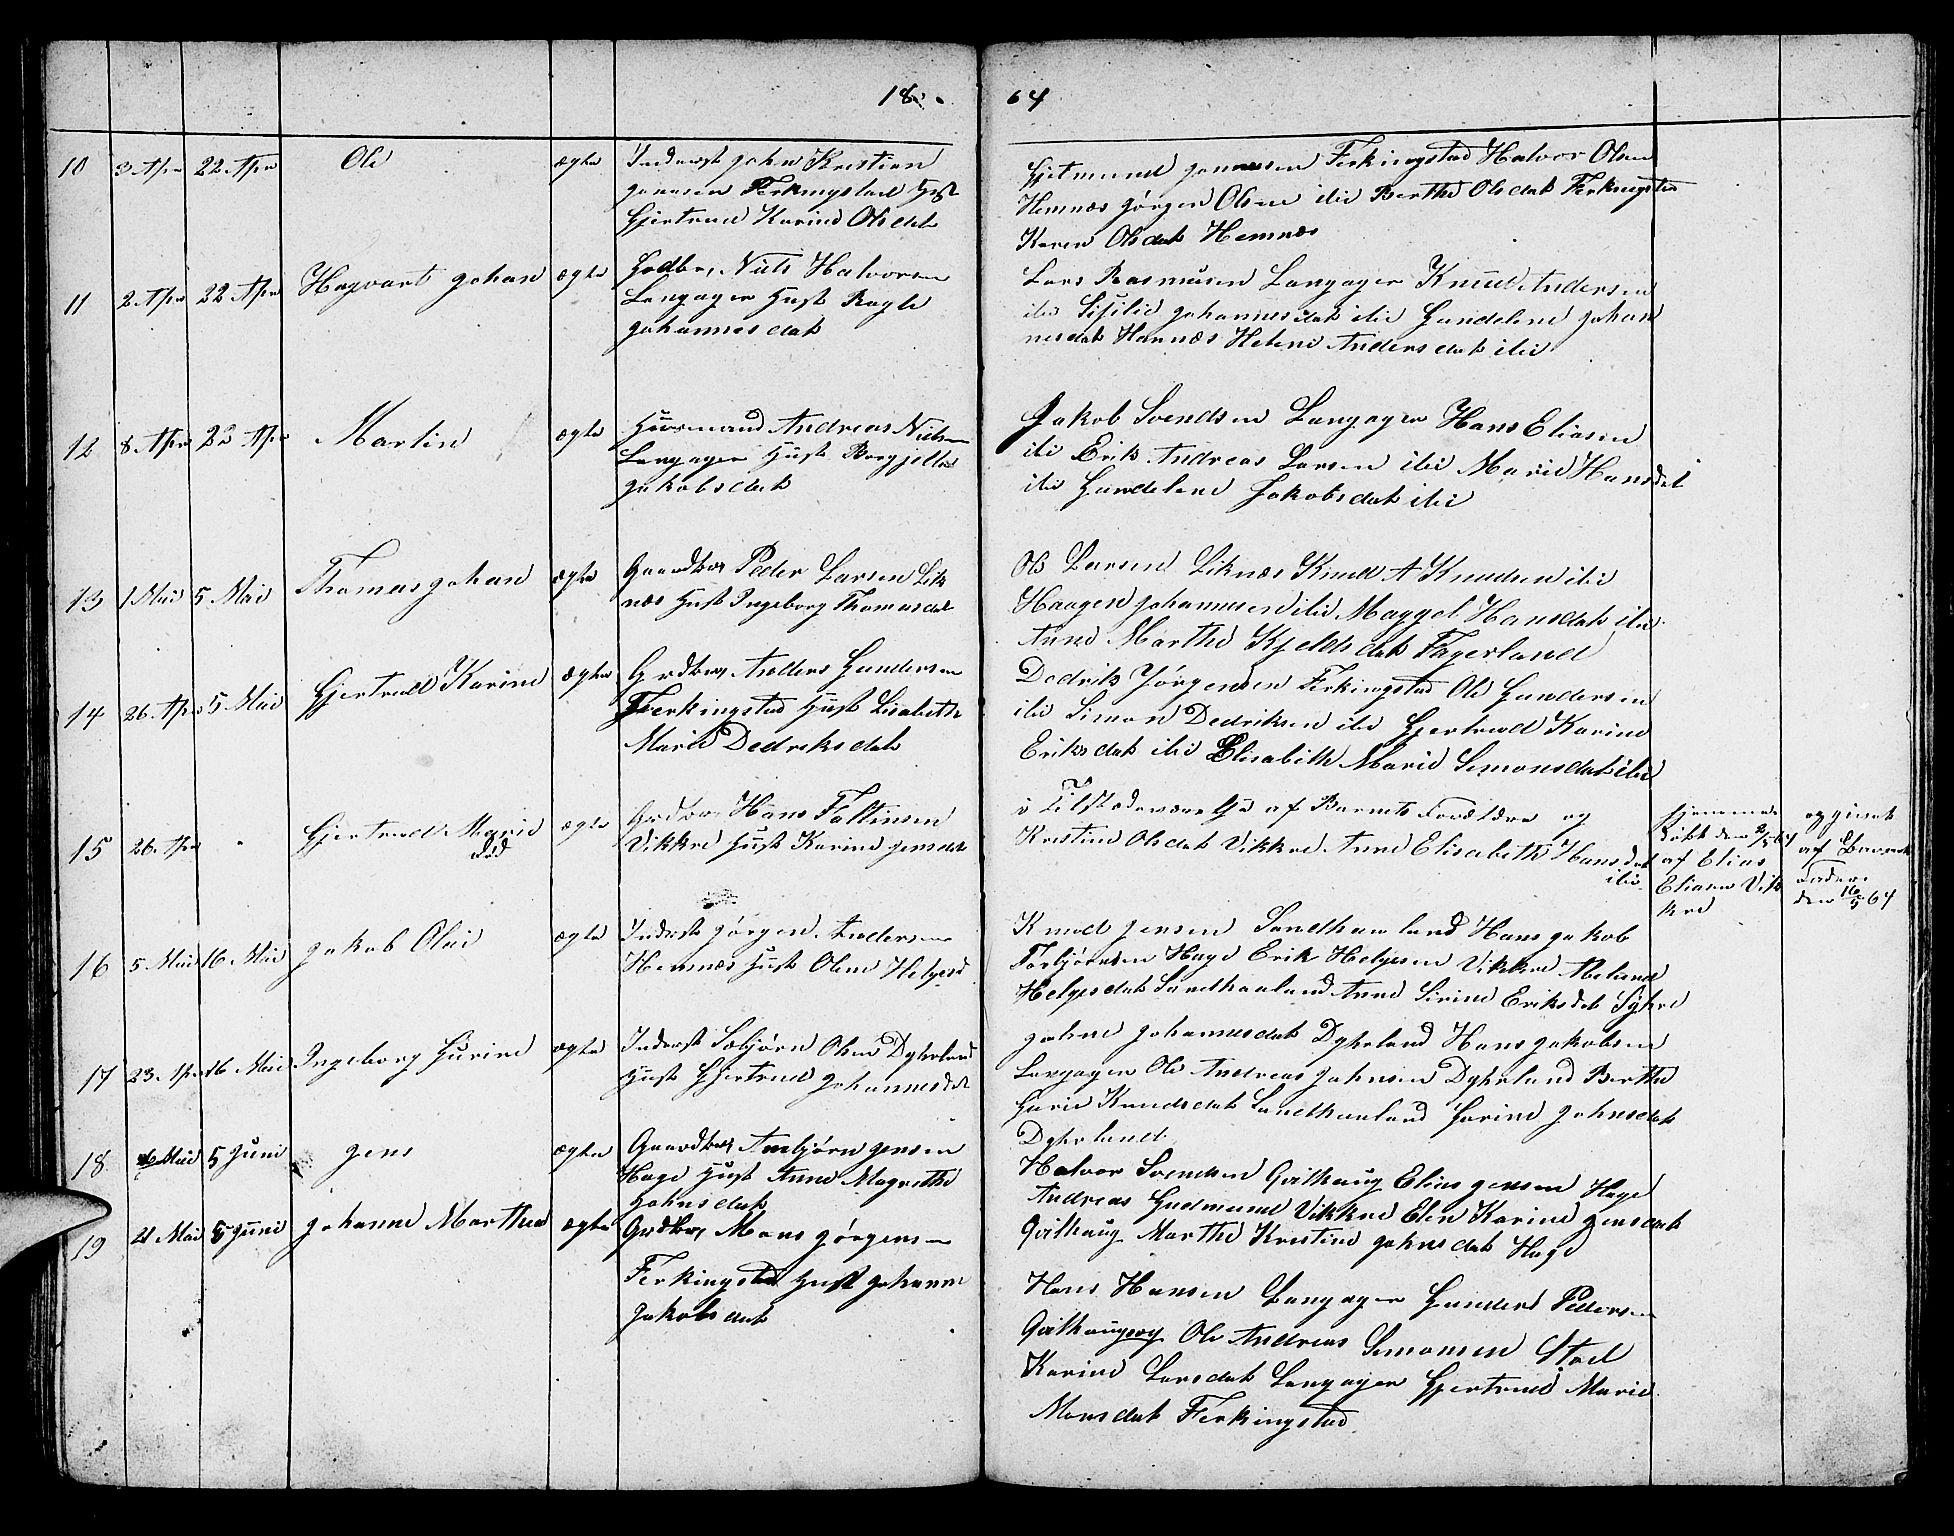 18 64
10 3 Apr 22 Apr Ole ægte Inderst John Kristian
Jonasen Ferkingstad Hust
Gjertrud Karine Olsdat
Gjetmund Jonnesen Ferkingstad Halvor Olsen
Hemnæs Jørgen Olsen ibi Berthe Olsdat Ferkingstad
Karen Olsdat Hemnæs
11 2 Apr 22 Apr Hagvart Johan ægte Grdbr, Niels Halvorsen
Langager Hust Ragle
Johannesdat
Lars Rasmusen Langager Knud Andersen
ibi Sisilie Johannesdat ibi Gundeline Johan
nesdat Hannæs Helene Andersdat ibi
12 8 Apr 22 Apr Martin ægte Huusmand Andreas Nielsen
Langager Hust Borgjelle
Jakobsdat
Jakob Svendsen Langager Hans Eliasen
ibi Erik Andreas Larsen ibi Marie Hansdat
ibi Gundelene Jakobsdat ibi
13 1 Mai 5 Mai Thomas Johan ægte Gaardbr Peder Larsen Lik
næs Hust Ingeborg Thomasdat
Ole Larsen Liknæs Knud A Knudsen ibi
Haagen Johannesen ibi Maggel Hansdat ibi
Anne Marthe Kjeldsdat Fagerland
14 26 Apr 5 Mai Gjertrud Karine ægte Grdbr, Anders Gundersen
Ferkingstad Hust Lisabeth
Marie Dedriksdat
Dedrik Jørgensen Ferkingstad Ole Gundersen
ibi Simon Dedriksen ibi Gjertrud Karine
Eriksdat ibi Elisabeth Marie Simonsdat ibi
15 26 Apr Gjertrud Marie
død
ægte Grdbr, Hans Faltinsen
Vikkre Hust Karine Jensdat
i Tilstædeværelse af Barnets Forældre og
Kristine Olsdat Vikkre Anne Elisabeth Hansdat
ibi
hjemme
døbt den 2/5 64
af Elias
Eliasen Vik
kre
af Barnets
Fader
den 16/5 64
16 5 Mai 16 Mai Jakob Olai ægte Inderst Jørgen Andersen
Hemnæs Hust Oline Helgesd
Knud Jensen Sandhaaland Hans Jakob
Torbjørnsen Hage Erik Helgesen Vikkre
Helgesdat Sandhaaland Anne Sirine Eriksdat Syre
17 23 Apr 16 Mai Ingeborg Gurine ægte Inderst Sæbjørn Olsen Dyhrland
Hust Gjertrud Johannesdat
Johne Johannesdat Dyhrland Hans Jakobsen
Langager Ole Andreas Johnsen Dyhrland Berthe
Gurie Knudsdat Sandhaaland Gurine Johnsdat
Dyhrland
18 Mai 5 Juni Jens ægte Gaardbr, Asbjørn Jensen
Hage Hust Anne Magrethe
Johnsdat
Halvor Svendsen Qvilhaug Elias Jensen Hage
Andreas Gudmund Vikkre Elen Karine Jensdat
Qvilhaug Marthe Kristine Johnsdat Hage
19 21 Mai 5 Juni Johanne Marthea ægte Grdbr, Mons Jørgensen
Ferkingstad Hust Johanne
Jakobsdat
Hans Hansen Langager Gunder Pedersen
Qvilhaug og Ole Andreas Simonsen Stol
Karine Larsdat Langager Gjertrud Marie
Monsdat Ferkingstad